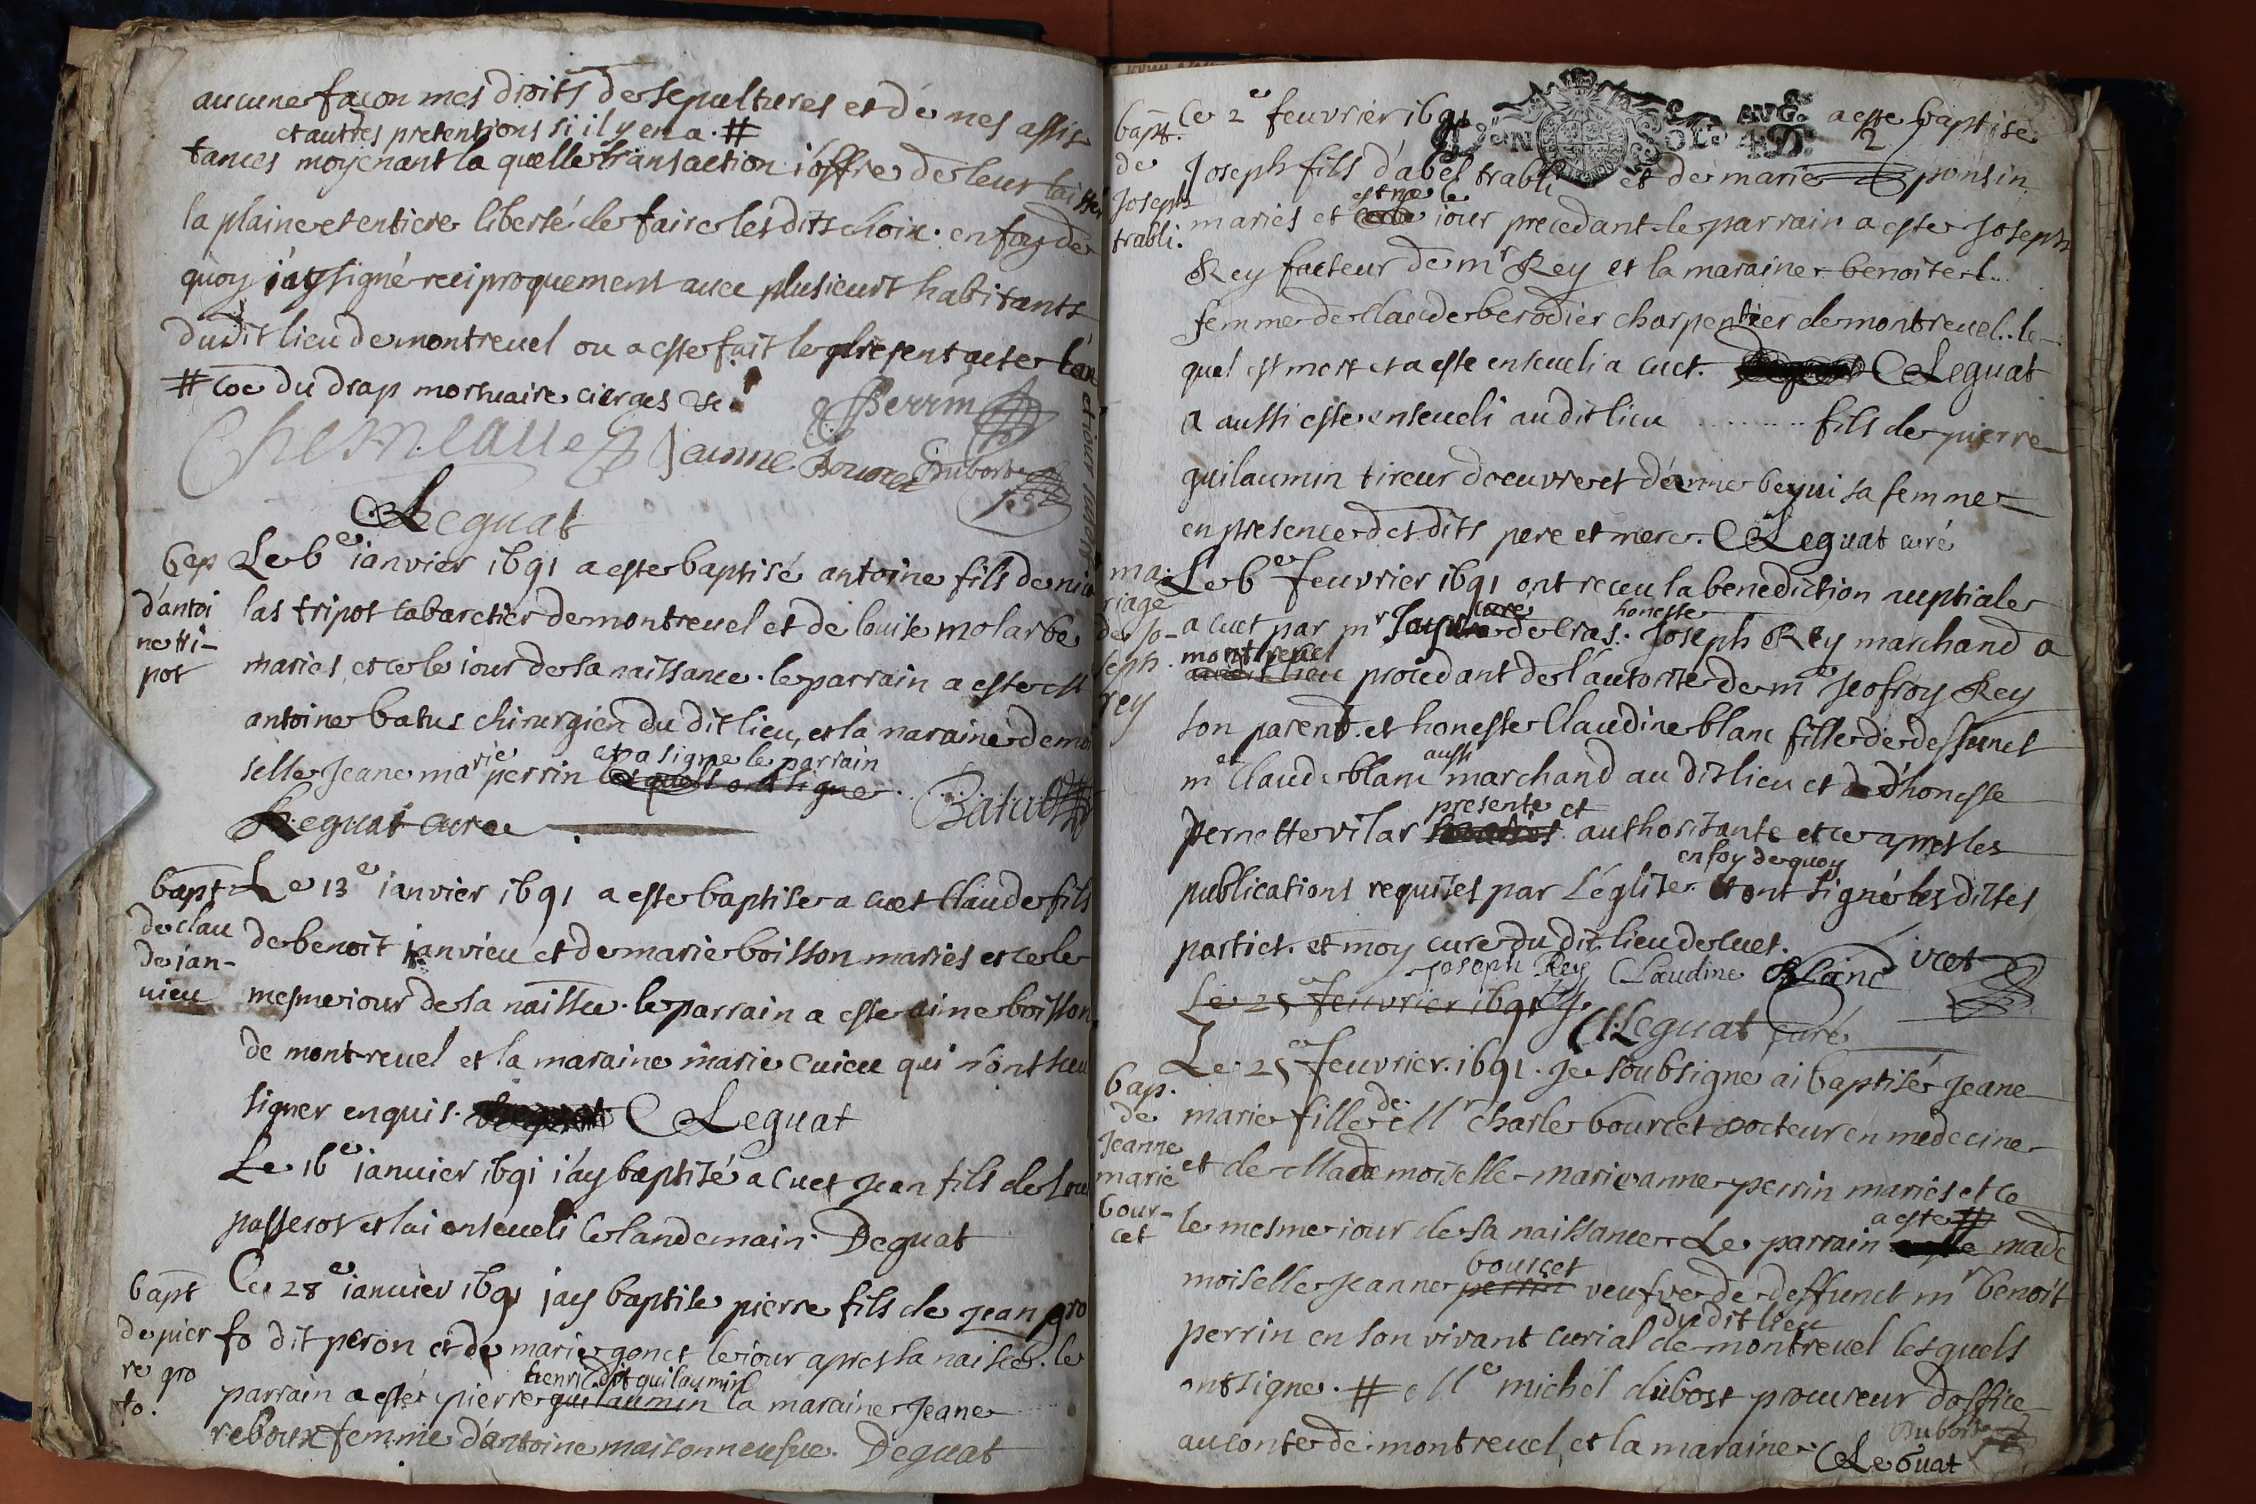 aucune façon mes droits de sepultures et de mes assis
et autres pretentions si il y en a. #
tances moyenant la quelle transaction i'offre de leur laisser
la plaine et entiere liberté de faire les dits choix. en foy de
quoy i'ay signé reciproquement avec plusieurs habitants
du dit lieu de montrevel ou a este fait le present acte l'an
# coe du drap mortuaire cierges &c.
et iour susdit
Perrin
Jaunne Bource Dubost
Leguat
bap
d'antoi
ne tri-
pot
Le 6e ianvier 1691 a este baptisé antoine fils de nico
las tripot cabarettier de montrevel et de louise molarbe
mariés, et ce le iour de sa naissance. le parrain a este
antoine batus chirurgien du dit lieu, et la maraine demoi
selle Jeane marie perrin et a signe le parrain
les quels ont signe. Batus
Leguat cure
bapt
de clau
de ian-
vieu
Le 13e ianvier 1691 a este baptise a cuet Claude fils
de benoit ianvieu et de marie boisson mariés et ce le
mesme iour de sa naissce. le parrain a este aime boisson
de montrevel et la maraine marie cuieu qui n'ont sceu
signer enquis. Leguat
Le 16e ianvier 1691 i'ay baptisé a cuet Jean fils de
passerot et l'ai enseveli le landemain. Deguat
bapt
de pier
re gro
fo.
Ce 28e ianvier 1691 j'ay baptise pierre fils de Jean gro
fo dit peron et de marie gonet le iour apres sa naissce. le
henri dit guilaumin
parrain a esté pierre guilaumin la maraine Jeane
reboux femme d'antoine maisonneufve. Deguat
bapt.
de
Joseph
trabli.
GEN ET AUG.
Ce 2e feuvrier 1691 a este baptisé
Joseph fils d'abel trabli et de marie ponsin
est né le
mariés et ce le iour precedant le parrain a este Joseph
Rey facteur de mr Rey et la maraine benoite
femme de Claude berodier charpentier de montrevel. le-
quel est mort et a este enseveli a cuet. Leguat
a aussi este enseveli au dit lieu ......... fils de pierre
guilaumin tireur d'oeuvre et d'enne beyui sa femme
en presence des dits pere et mere. Leguat curé
ma-
riage
de Jo-
seph
rey
Le 6e feuvrier 1691 ont receu la benediction nuptiale
cure honeste
a cuet par mr de cras. Joseph Rey marchand a
montrevel
au dit lieu procedant de l'autorité de mre Jeofroy Rey
son parent. et honeste Claudine blanc fille de deffunct
me Claude blanc aussi marchand au dit lieu et d'honeste
presente et
pernette vilar authorisante et ce apres les
en foy de quoy
publications requises par l'eglise. ont signé les dittes
parties. et moy cure du dit lieu de cuet.
Joseph Rey Claudine Blanc
Le 25 feuvrier 1691
Leguat curé
bap.
de
Jeanne
marie
bour-
cet
Le 25e feuvrier. 1691. Je soubsigné ai baptisé Jeane
marie fille de Mr charle bourcet docteur en medecine
et de Mademoiselle marie anne perrin mariés et ce
a este #
le mesme iour de sa naissance. Le parrain made
bourcet
moiselle Jeanne perrin veufve de deffunct mr benoit
du dit lieu
perrin en son vivant curial de montrevel lesquels
ont signe. # Me michel dubost procureur d'office
au conte de montrevel, et la maraine Dubost
Leguat